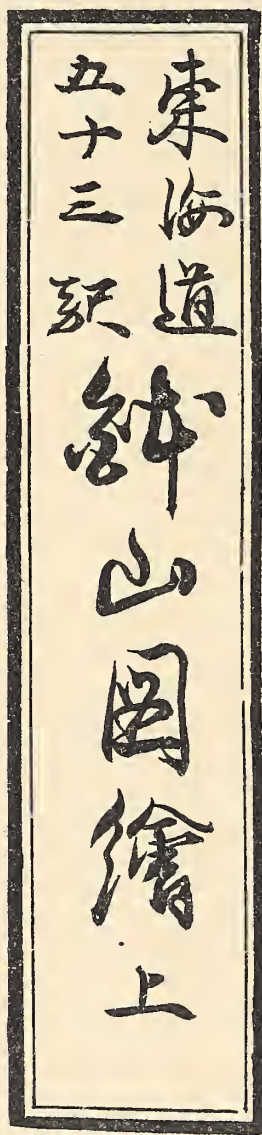 東海道
五十三駅
鉢山図繪上